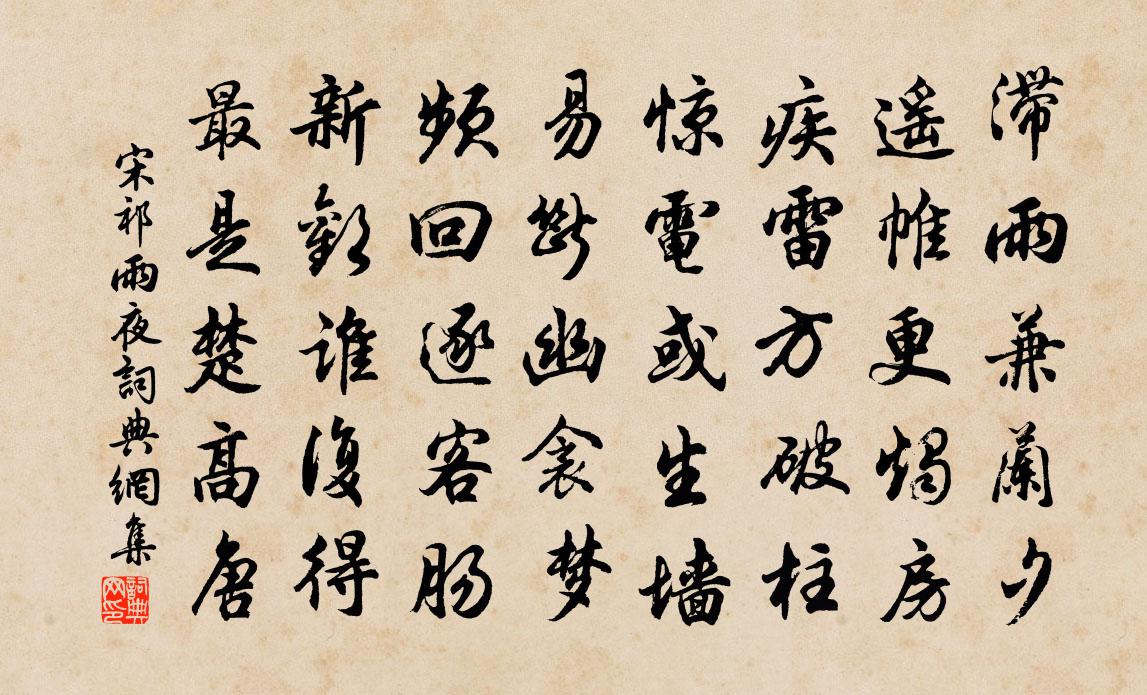 滞雨兼蘭夕
遥帷更燭房
疾雷方破柱
惊電或生墙
易斷幽衾梦
频回逐客肠
新歡谁復得
最是楚高唐
宋祁雨夜詞典網集
詞典
网印